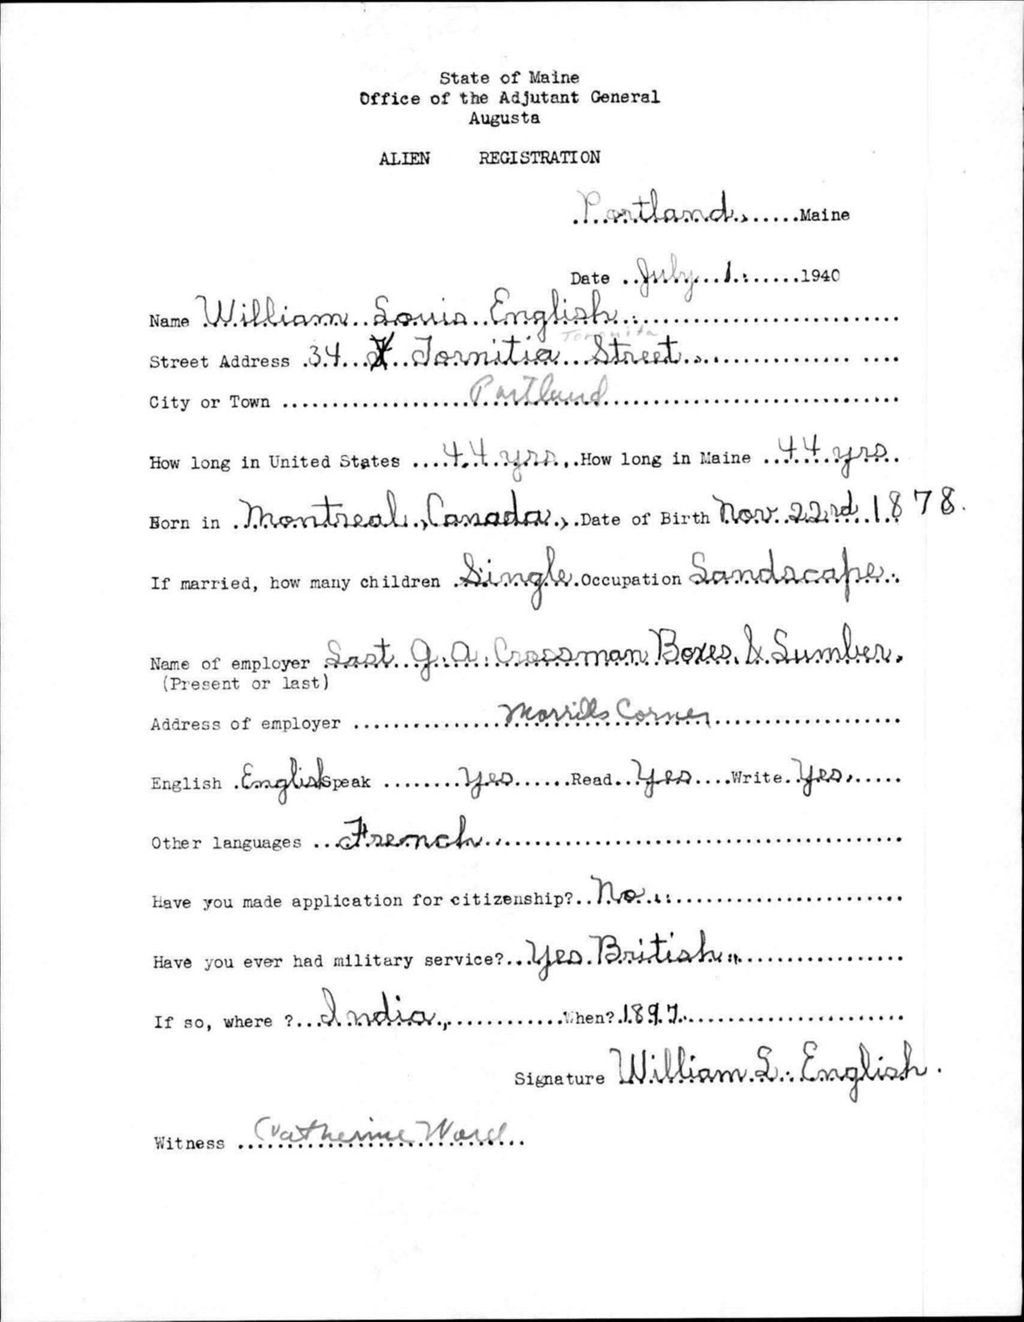 State of Maine
Office of the Adjutant General
Augusta
ALIEN REGISTRATION
Portland, Maine
Date July 1. 1940
Name William Louis English
Toronita
Street Address 34 Tornitia Street
City or Town Portland
How long in United States 44 yrs. How long in Maine 44 yrs.
Born in Montreal, Canada, Date of Birth Nov. 22rd 1878.
If married, how many children Single Occupation Landscape
Name of employer Last G. A. Crossman Boxes & Lumber.
(Present or last)
Address of employer Morrills Corner
English English Speak Yes Read Yes Write Yes.
Other languages French
Have you made application for citizenship? No
Have you ever had military service? Yes British
If so, where ? India, When? 1897.
Signature William L. English.
Witness Catherine Ward